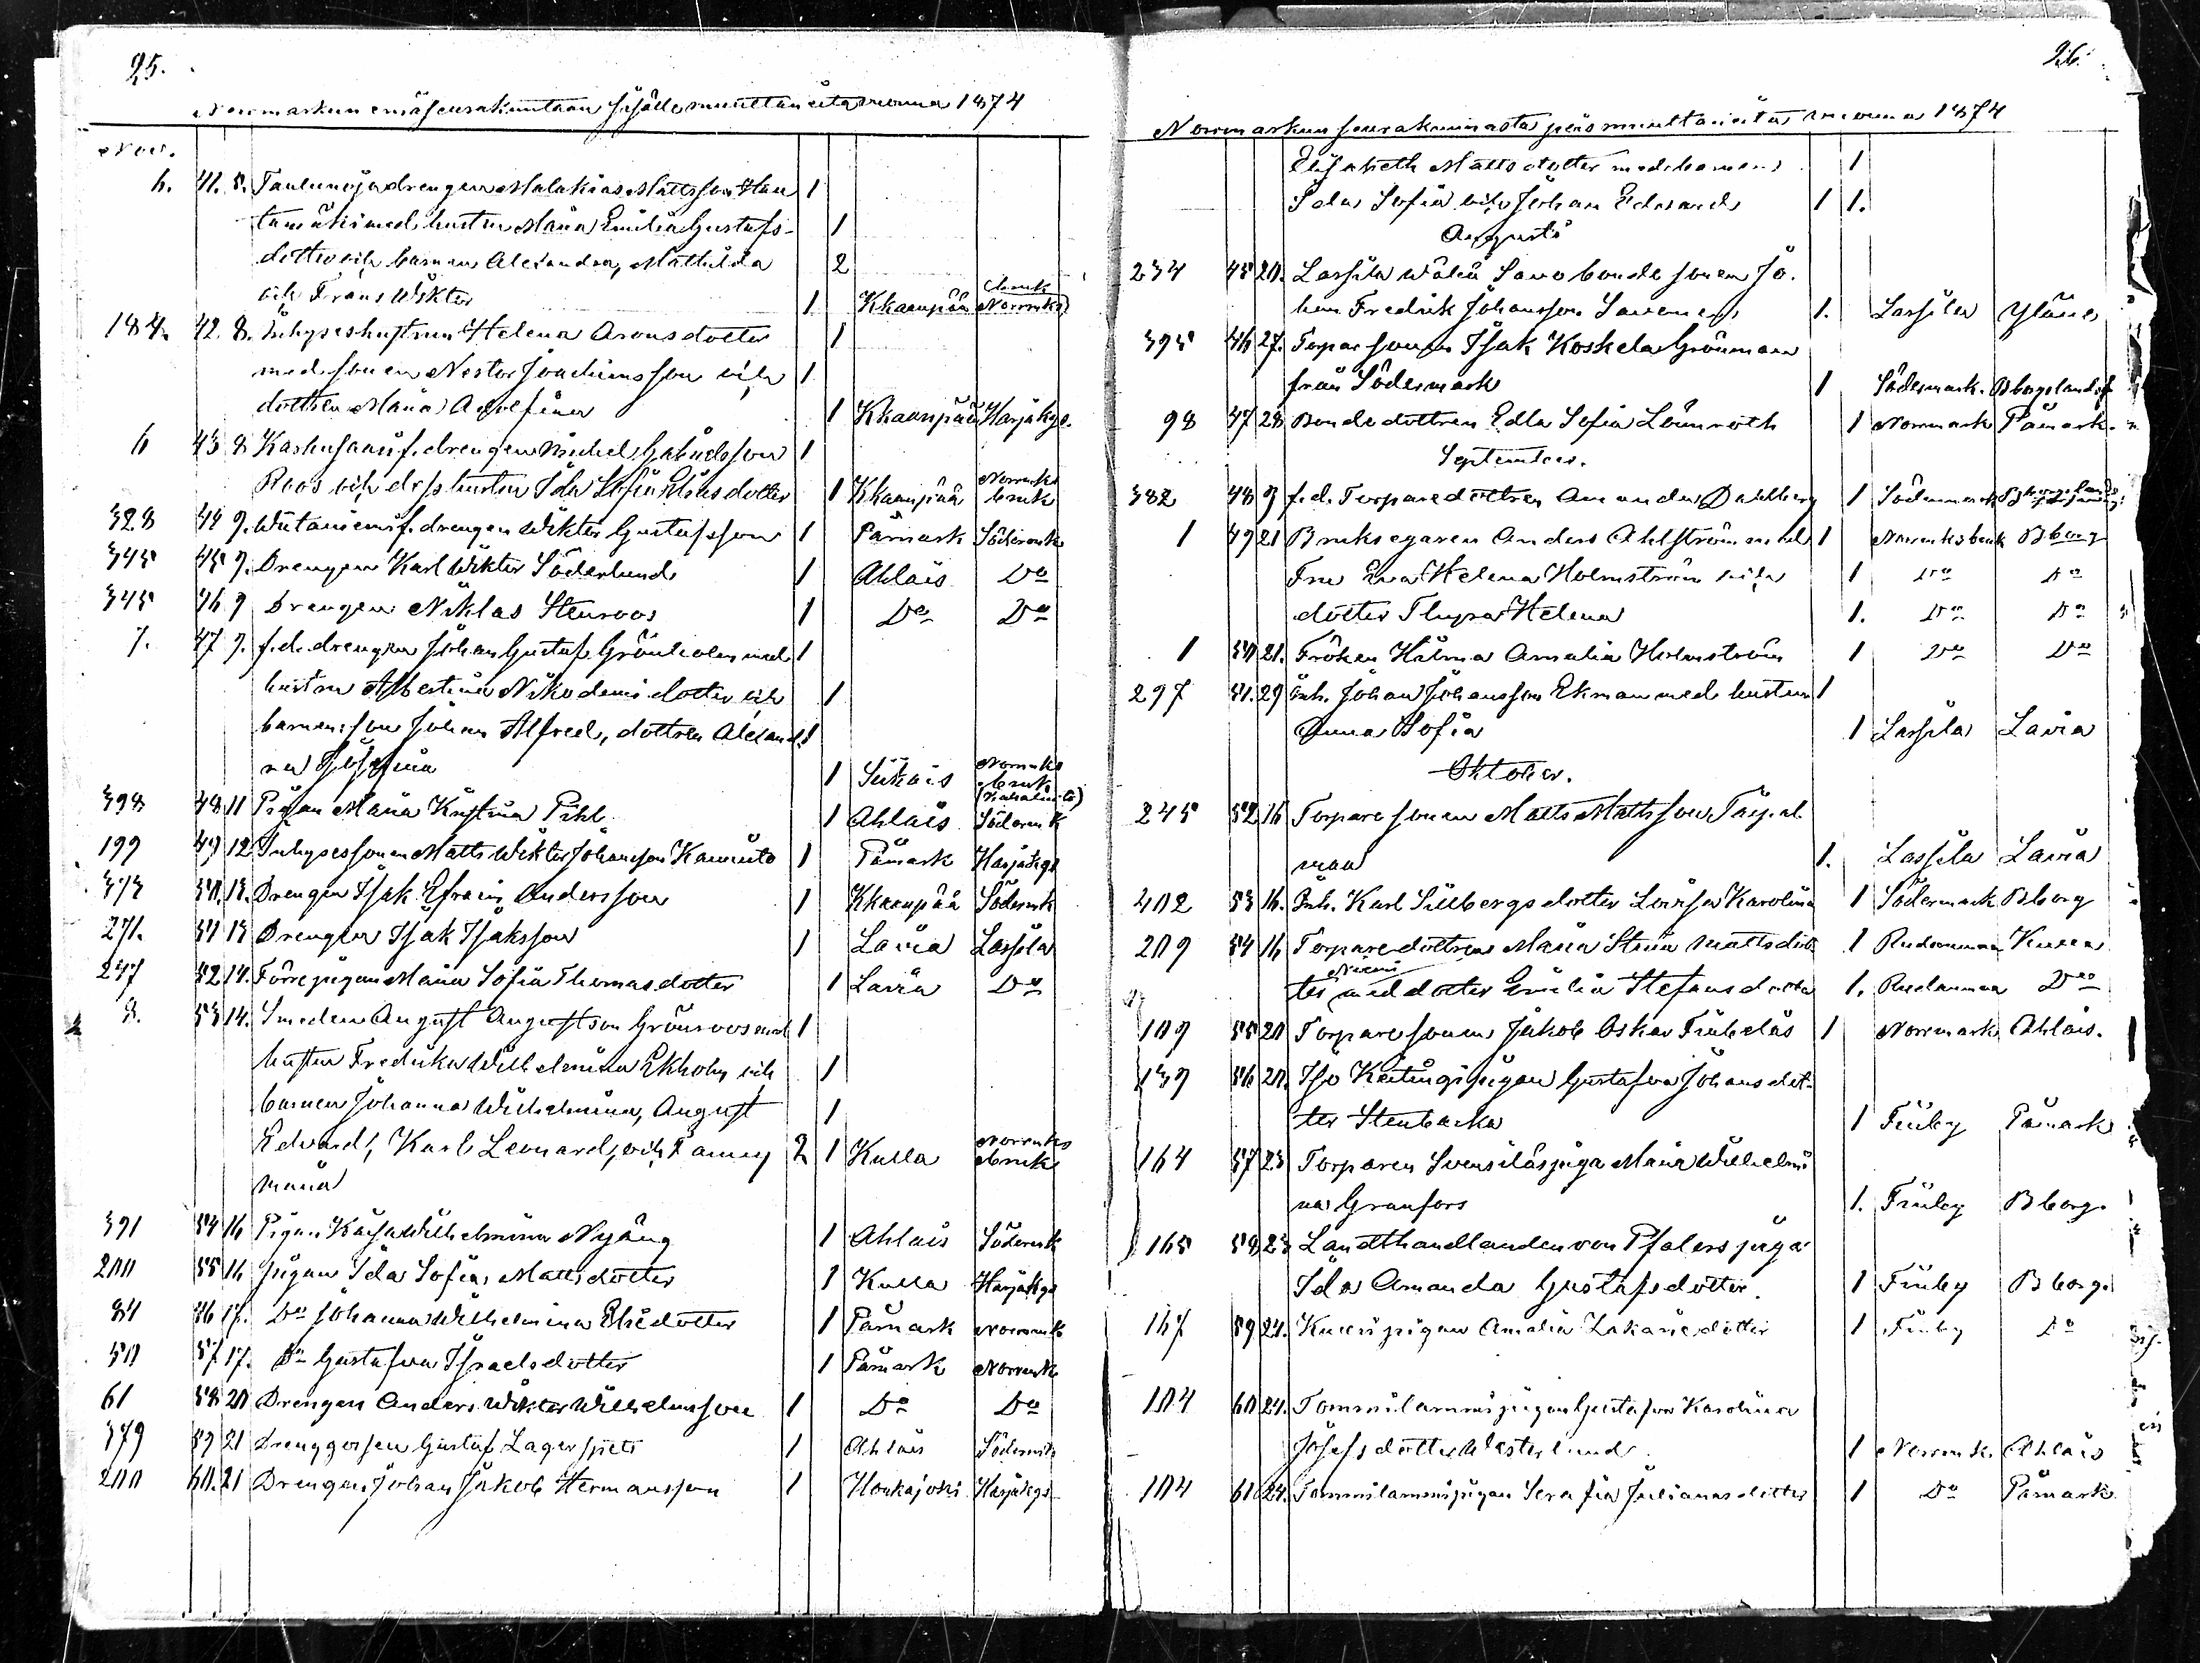 25.
Norrmarkun emäseurakuntaan sisälle muuttaneita vuonna 1874
Nov.
6. 41. 8. drengen Malakias Mattsson Hau 1
med hustru Maria Emilia Gustafs- 1
dotter och barnen Alexandra, Mathilda 2
och Frans Wiktor 1 Kkaanpää Norrmks bruk
184. 42. 8. Inhyseshustrun Helena Aronsdotter 1
med sonen Nestor Joachimsson och 1
dottren Maria Adolfina 1 Kkaanpää Harjakgs.
6 43 8 f. drengen Michel Gabrielsson 1
Roos och dess hustru Ida Sofia Eliasdotter 1 Kkaanpää Norrmks bruk
328 44 9. f. drengen Wiktor Gustafsson 1 Påmark Södermk
345 45 9. Drengen Karl Wiktor Söderlund 1 Ahlais Do
345 46 9 Drengen Niklas Stenroos 1 Do Do
7. 47 9. f.d. drengen Johan Gustaf Grönholm med 1
hustru Albertina Nikodemi dotter och 1
barnen: son Johan Alfred, dottren Alexand- 1
ra Josefina 1 Siikais Norrmks bruk
398 48 11 Pigan Maria Kristina Pihl 1 Ahlais Södermk
199 49 12 Inhysessonen Matts Wiktor Johansson Kaunisto 1 Påmark Harjakgs
373 50. 13. Drengen Isak Efraim Andersson 1 Kkaanpää Södermk
271. 51 13 Drengen Isak Isaksson 1 Lavia Lassila
247 52 14. pigan Maria Sofia Thomasdotter 1 Lavia Do
8. 53 14. Smeden August Augustson Grönroos med 1
hustru Fredrika Wilhelmina Ekholm och 1
barnen Johanna Wilhelmina, August 1
Edvard, Karl Leonard, och Fanny 2 1 Kulla Norrmks bruk
Maria
391 54 16 Pigan Kaisa Wilhelmina Nyäng 1 Ahlais Södermk
200 55 16 pigan Ida Sofia Mattsdotter 1 Kulla Harjakgs
84 56 17. Do Johanna Wilhelmina Eliedotter 1 Påmark Norrmk
50 57 17. Do Gustafva Israelsdotter 1 Påmark Norrmk
61 58 20 Drengen Anders Wiktor Wilhelmsson 1 Do Do
379 59 21 Drenggossen Gustaf Lagerspets 1 Ahlais Södermk
200 60. 21 Drengen Johan Jakob Hermansson 1 Honkajoki Harjakgs
26.
Norrmarkun seurakunnasta pois muuttaneita vuonna 1874
Elisabeth Mattsdotter med barnen: 1
Ida Sofia och Johan Edvard 1 1.
Augusti
234 45 20. Lassila Savo bondesonen Jo-
han Fredrik Johansson 1. Lassila Yläne
395 46 27. Torparsonen Isak Koskela Grönman
från Södermark 1 Södermark. Bborgs landsf
98 47 28 Bondedottren Edla Sofia Lönnroth 1 Norrmark Påmark.
September.
382 48 3 f.d. Torparedottren Amanda Dahlberg 1 Södermark
1 49 21 Bruksegaren Anders Ahlström med 1 Norrmksbruk Bborg
Fru Eva Helena Holmström och 1 Do Do
dotter Thyra Helena 1. Do Do
1 50 21. Fröken Hilma Amalia Holmström 1 Do Do
297 51. 29 Inh. Johan Johansson Ekman med hustru 1
Anna Sofia 1 Lassila Lavia
Oktober.
245 52 16 Torparesonen Matts Mattsson
man 1. Lassila Lavia
402 53 16. Inh. Karl Sillbergs dotter Lovisa Karolina 1 Södermark Bborg
209 54 16 Torparedottren Maria Stina Mattsdot- 1 Rudanmaa
Niemi
ter med dotter Emilia Stefansdotter 1. Rudanmaa Do
109 55 20 Torparesonen Jakob Oskar 1 Norrmark Ahlais.
139 56 20. Iso Keitingi pigan Gustafva Johansdot-
ter Stenbacka 1 Finby Påmark
164 57 23 Torparen piga Maria Wilhelmi
na Granfors 1. Finby Bborg.
165 58 23 Landthandlanden von Pfalers piga
Ida Amanda Gustafsdotter. 1 Finby Bborg.
167 59 24. pigan Amalia Zakariedotter 1 Finby Do
104 60 24. Tommilammi pigan Gustafva Karolina
Josefsdotter Westerlund 1 Norrmk. Ahlais
104 61 24. Tommilammi pigan Serafia Julianasdotter 1 Do Påmark